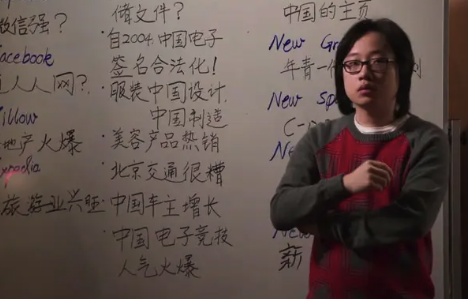 微信强?
acebook
人人网?
illow
地产火爆
xpedia
旅游业兴旺
储文件?
·自2004.中国电子
签名合法化!
·服装中国设计,
中国制造
·美容产品热销
·北京交通很糟
·中国车主增长
·中国电子竞技
人气火爆
中国的主页
New
年青一
New
New
新